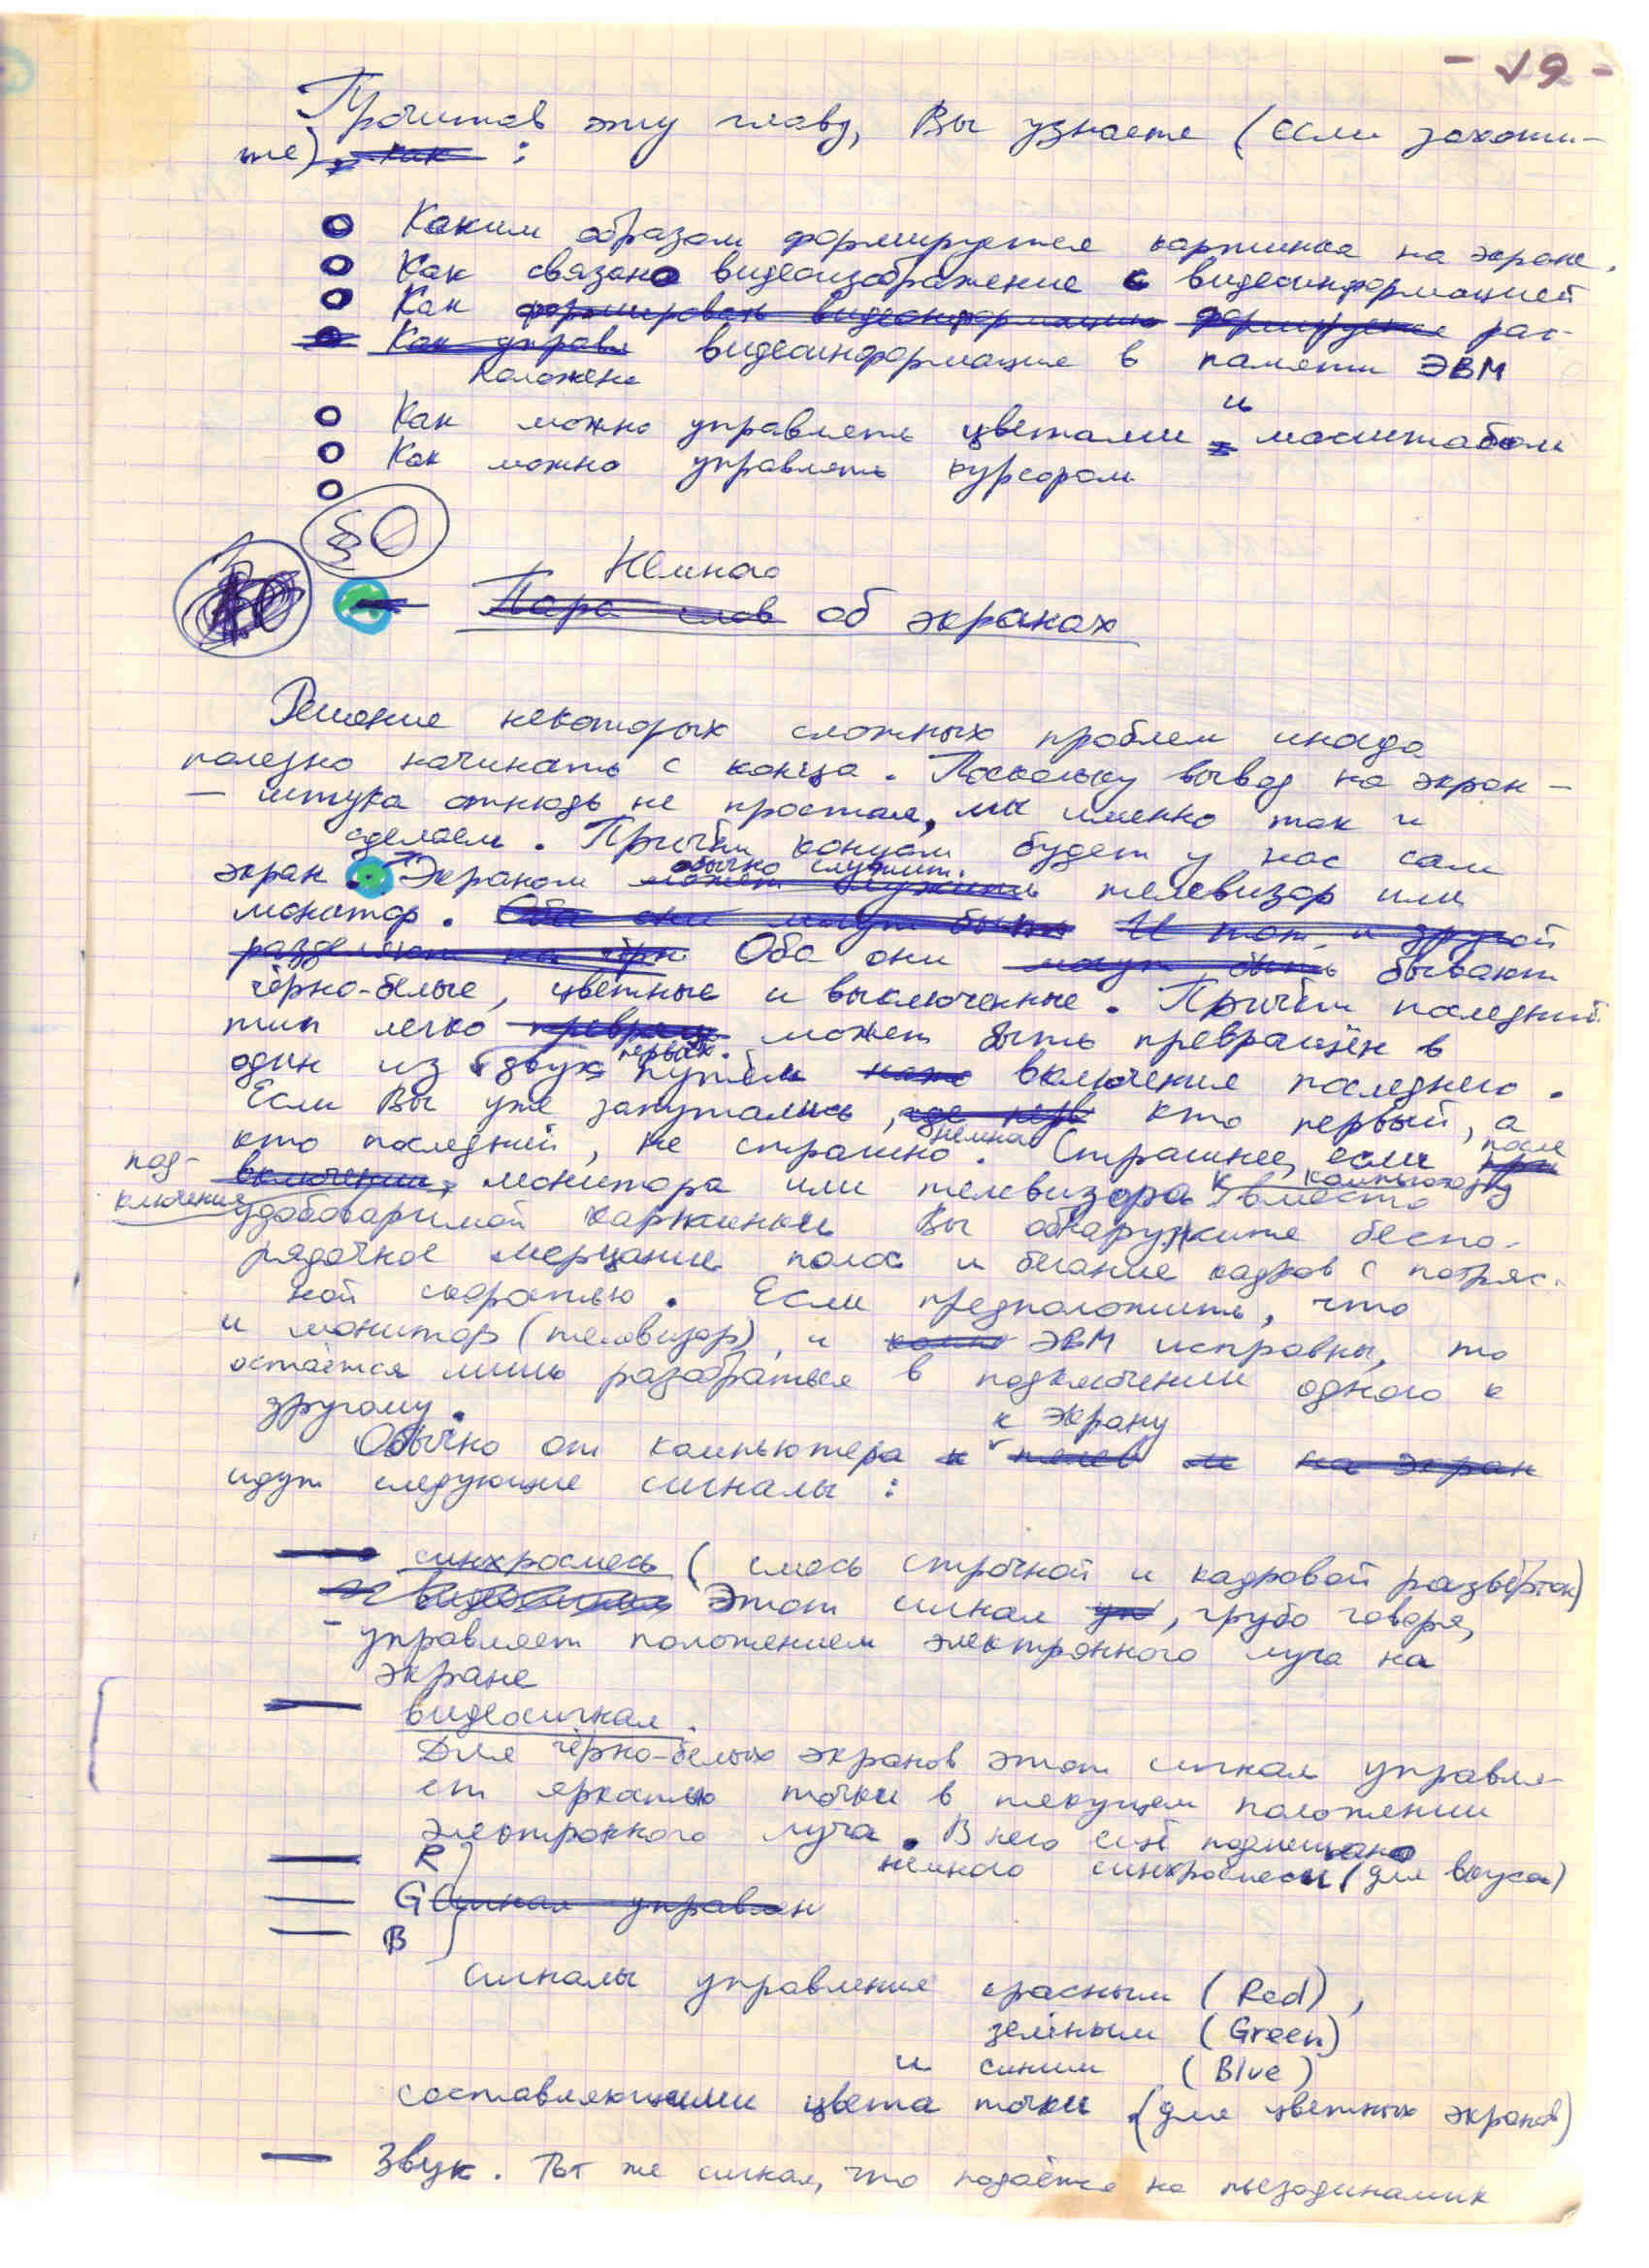 - 19 -
Прочитав эту главу, Вы узнаете (если захоти-
те), как :
Каким образом формируется картинка на экране.
Как связано видеоизображение с видеоинформацией
Как формировать видеоинформацию формируется рас-
Как управл видеоинформация в памяти ЭВМ
положена
и
Как можно управлять цветами масштабом
Как можно управлять курсором
§0
Немного
Пара слов об экранах
Решение некоторых сложных проблем иногда
полезно начинать с конца. Поскольку вывод на экран —
— штука отнюдь не простая, мы именно так и
сделаем. Причём концом будет у нас сам
обычно служит
экран. Экраном может служить телевизор или
монитор. Оба они могут быть И тот и другой
разделяют на чёрн Оба они могут быть бывают
чёрно-белые, цветные и выключенные. Причём последний
тип легко превращ может быть превращён в
первых
один из двух путём включения последнего.
Если Вы уже запутались, где перв кто первый, а
немного после
кто последний, не страшно. Страшнее, если при
под- включении монитора или телевизора к компьютеру вместо
ключения удобоваримой картинки Вы обнаружите беспо-
рядочное мерцание полос и бегание кадров с потряс.
ной скоростью. Если предположить, что
и монитор (телевизор), и комп ЭВМ исправны, то
остаётся лишь разобраться в подключении одного к
другому.
к экрану
Обычно от компьютера к телев и на экран
идут следующие сигналы :
— синхросмесь (смесь строчной и кадровой развёрток)
Этот сигнал уп, грубо говоря,
- управляет положением электронного луча на
экране
— видеосигнал.
Для чёрно-белых экранов этот сигнал управля-
ет яркостью точки в текущем положении
электронного луча. В него ещё подмешано
немного синхросмеси (для вкуса)
— R
— G Сигнал управлен
— B
сигналы управления красным (Red),
зелёным (Green)
и синим (Blue)
составляющими цвета точки (для цветных экранов)
— Звук. Тот же сигнал, что подаётся на пьезодинамик